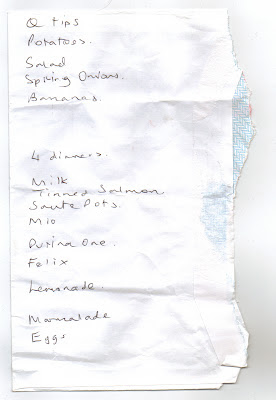 Q tips
Potatoes.
Salad
Spring Onions.
Bananas.
4 dinners.
Milk
Tinned Salmon.
Saute Pots.
Mio
Purina One.
Felix
Lemonade.
Marmalade
Eggs